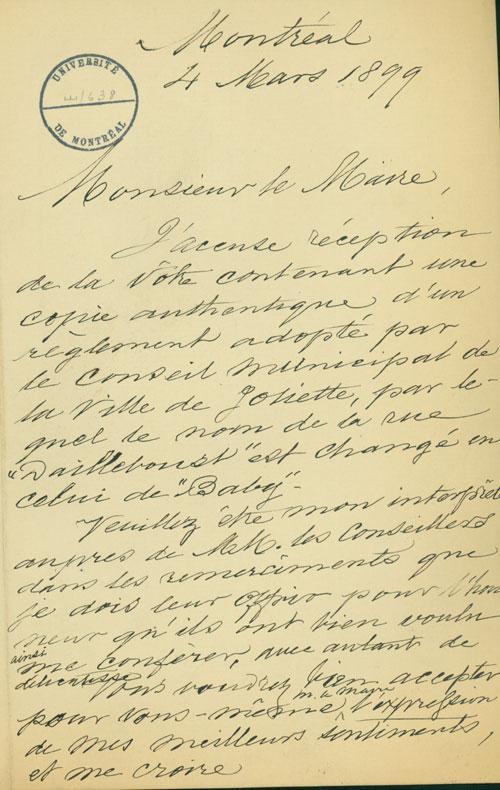 Montréal
4 Mars 1899
UNIVERSITÉ
DE MONTRÉAL
Monsieur le Maire,
J'accuse réception
de la vôtre contenant une
copie authentique d'un
règlement adopté par
le conseil municipal de
la Ville de Joliette, par le-
quel le nom de la rue
"Dailleboust" est changé en
celui de "Baby".
Veuillez être mon interprète
auprès de MM. les Conseillers
dans les remerciments que
je dois leur offrir pour l'hon
neur qu'ils ont bien voulu
ainsi
me conférer, avec autant de
délicatesse
Vous voudrez bien accepter
M. le Maire
pour vous-même l'expression
de mes meilleurs sentiments,
et me croire